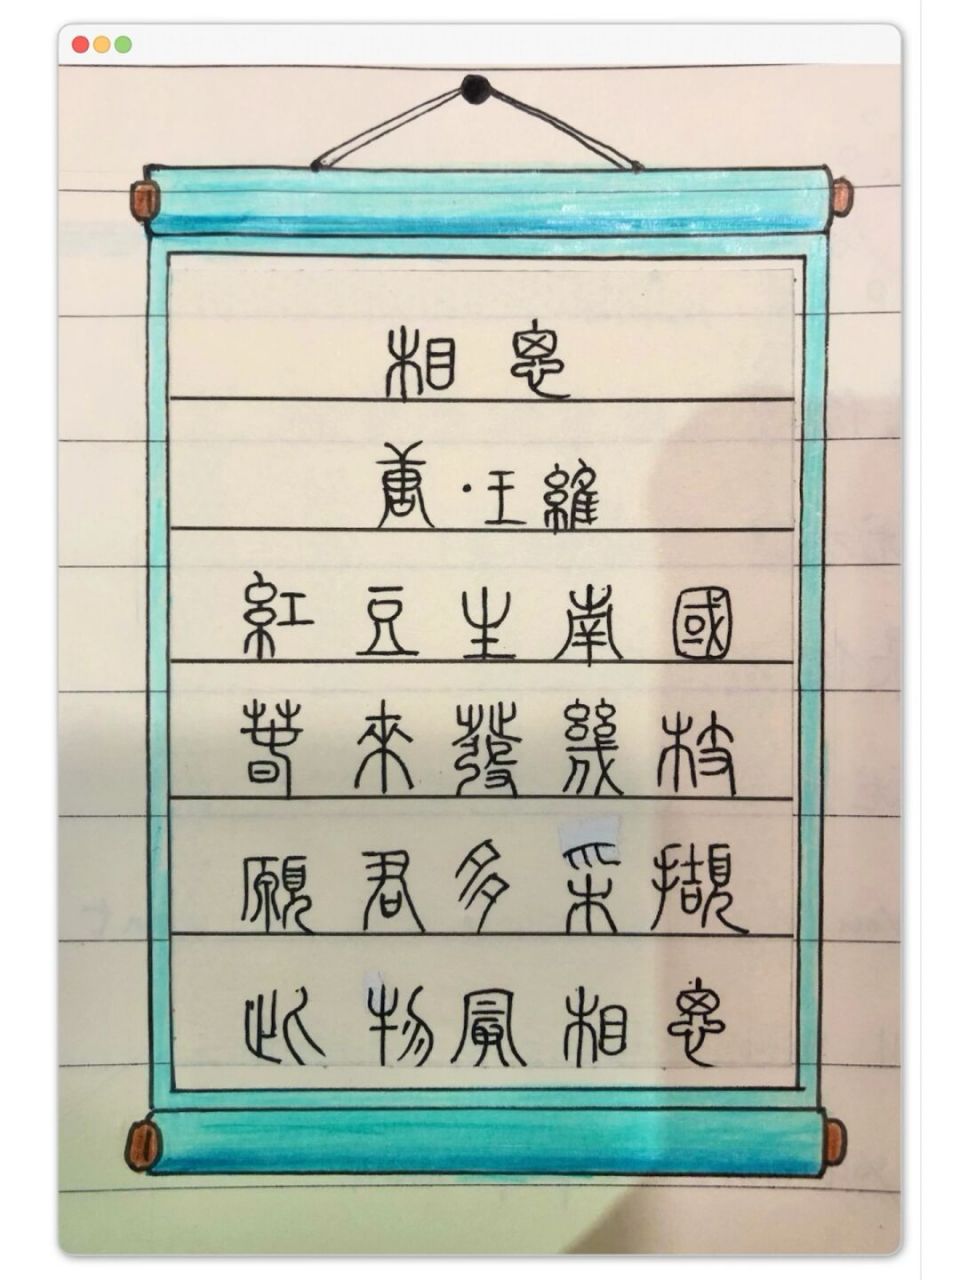 相思
唐·王維
紅豆生南國
春來發幾枝
願君多采擷
此物最相思